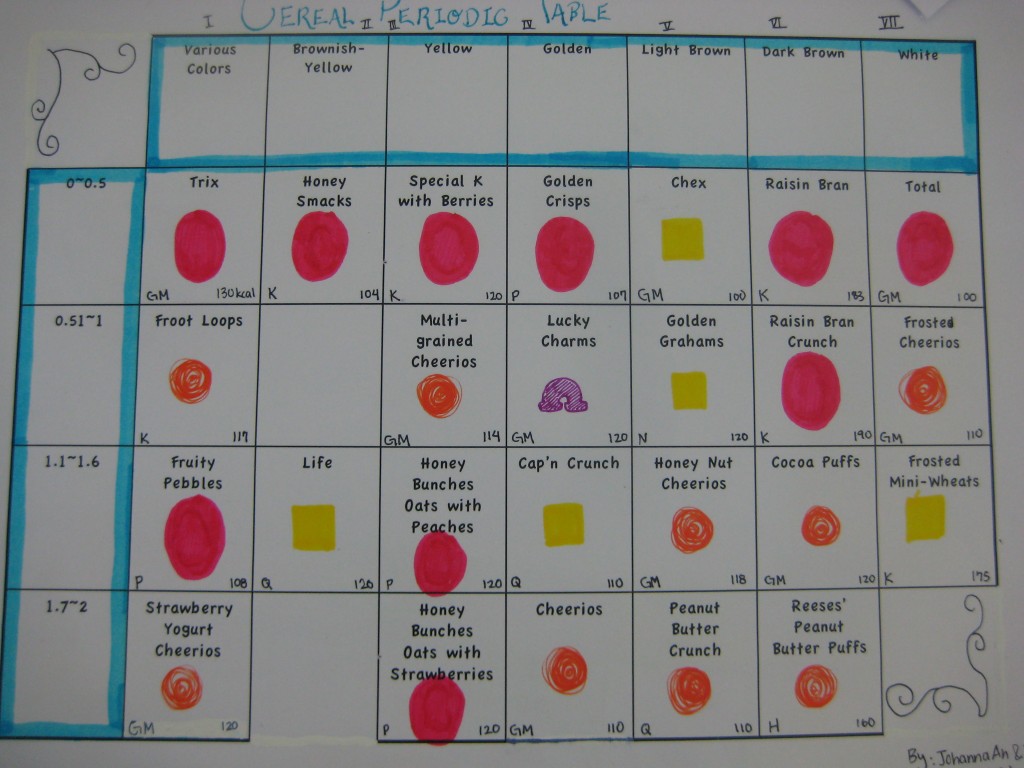 CEREAL PERIODIC TABLE
I II III IV V VI VII
Various
Colors
Brownish-
Yellow
Yellow
Golden
Light Brown
Dark Brown
White
0~0.5
Trix
GM 130kcal
Honey
Smacks
K 104
Special K
with Berries
K 120
Golden
Crisps
P 107
Chex
GM 100
Raisin Bran
K 183
Total
GM 100
0.51~1
Froot Loops
K 117
Multi-
grained
Cheerios
GM 114
Lucky
Charms
GM 120
Golden
Grahams
N 120
Raisin Bran
Crunch
K 190
Frosted
Cheerios
GM 110
1.1~1.6
Fruity
Pebbles
P 108
Life
Q 120
Honey
Bunches
Oats with
Peaches
P 120
Cap'n Crunch
Q 110
Honey Nut
Cheerios
GM 118
Cocoa Puffs
GM 120
Frosted
Mini-Wheats
K 175
1.7~2
Strawberry
Yogurt
Cheerios
GM 120
Honey
Bunches
Oats with
Strawberries
P 120
Cheerios
GM 110
Peanut
Butter
Crunch
Q 110
Reeses'
Peanut
Butter Puffs
H 160
By: Johanna An &